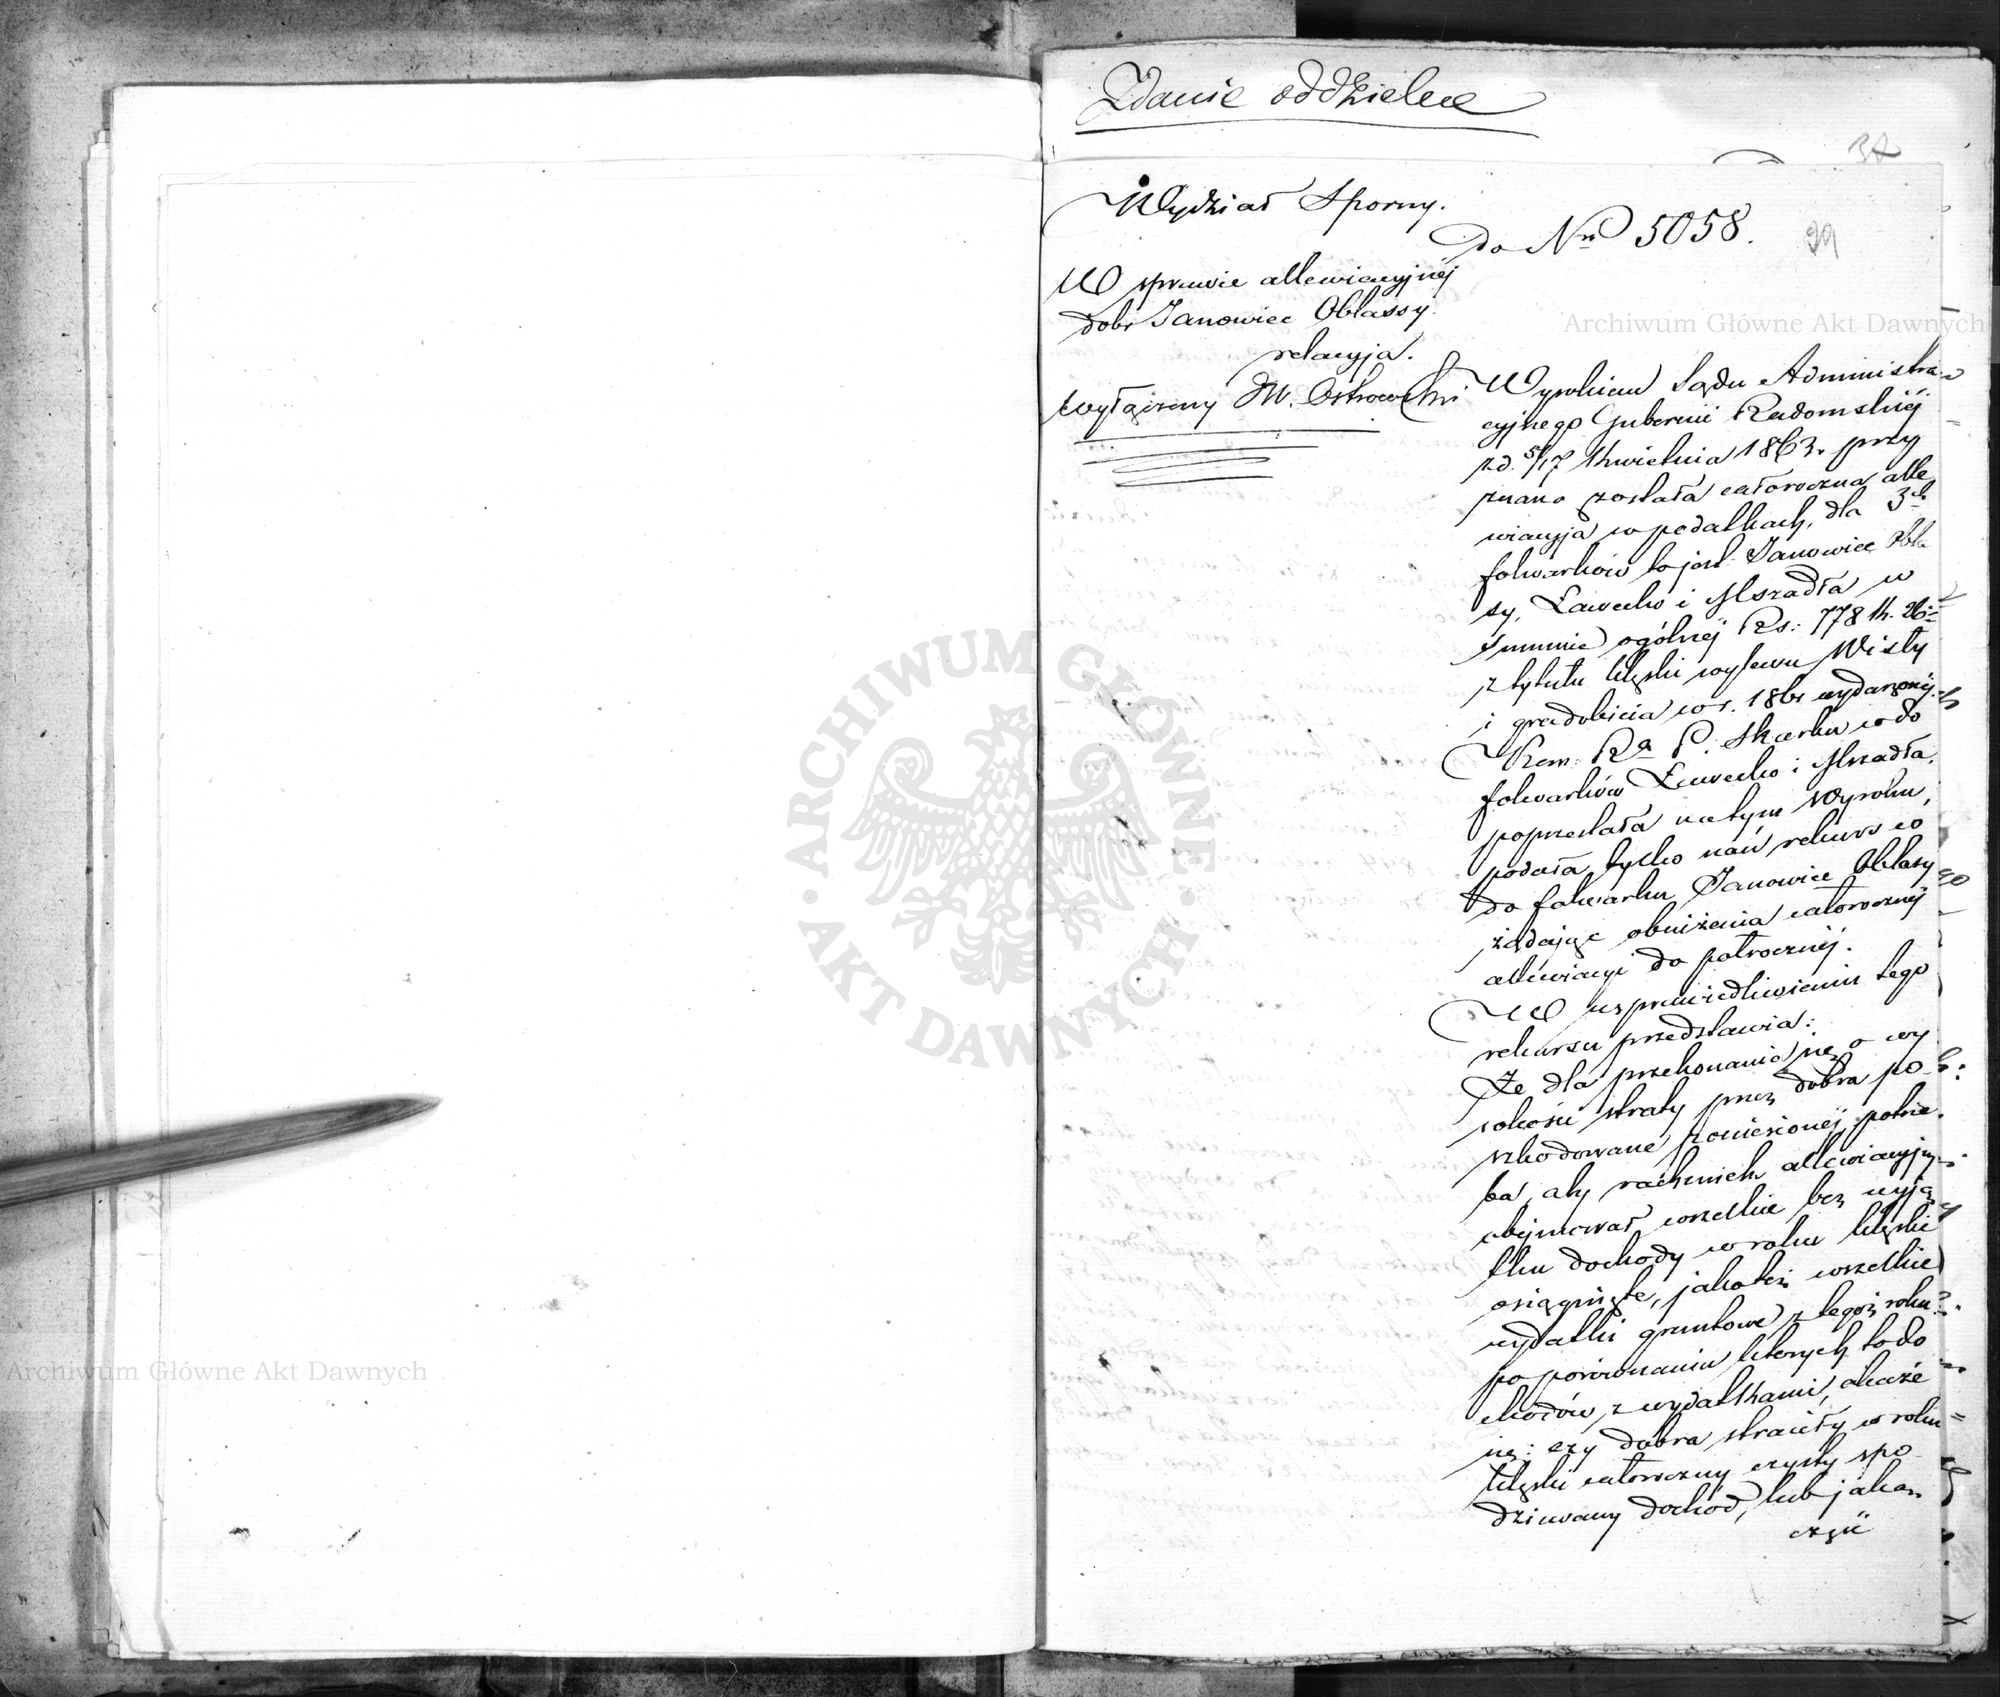 Zdanie oddzielne
37
Wydział Sporny.
do Nru 5058.
29
W sprawie allewiacyjnéj
dóbr Janowiec Obłassy
relacyja.
wyłączony JW. Ostrowski
Wyrokiem Sądu Administra
cyjnego Gubernii Radomskiéj
zd. 5/17 Kwietnia 1863 r. przy
znana została całoroczna alle
wiacyja w podatkach, dla 3ch
folwarków to jest Janowiec Obła
sy, Ławecko i Mszadła w
summie ogólnéj Rs: 778 k. 26
z tytułu klęski wylewu Wisły
i gradobicia w r. 1861 wydarzonéj.
Kom: Ra P. Skarbu co do
folwarków Ławecko i Mszadła,
poprzestała na tym Wyroku,
podała tylko nań rekurs co
do folwarku Janowiec Obłasy
żądając obniżenia całorocznéj
allewiacyi do półrocznéj.
W usprawiedliwieniu tego
rekursu przedstawia:
Że dla przekonania się o wy
sokości straty przez dobra po
szkodowane poniesionéj, potrze
ba, aby rachunek allewiacyjny
obejmował wszelkie bez wyją
tku dochody w roku klęski
osiągnięte, jakoteż wszelkie
wydatki gruntowe z tegoż roku
po porównaniu których to do
chodów, z wydatkami, okaże
się: czy dobra straciły w roku
klęski całoroczny czysty spo
dziewany dochód, lub jakąś
część
Archiwum Główne Akt Dawnych
ARCHIWUM GŁÓWNE AKT DAWNYCH
Archiwum Główne Akt Dawnych